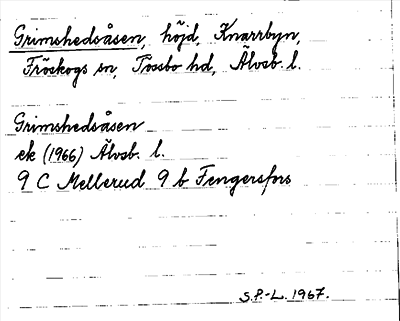 Grimshedsåsen, höjd, Knarrbyn,
Fröskogs sn, Tössbo hd, Älvsb. l.
Grimshedsåsen
ek (1966) Älvsb. l.
9 C Mellerud 9 b Fengersfors
S.P.-L. 1967.